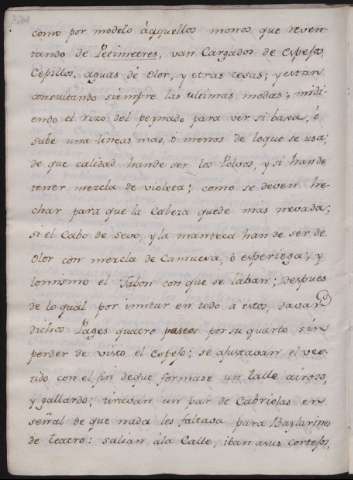 como por modelo àaquellos monos, que reven-
tando de Petimetres, van Cargados de Espejos,
Cepillos, aguas de olor, y otras cosas; y estan
consultando siempre las ultimas modas; midi-
endo el rizo del peynado para ver si baxa, ó
sube una lineas mas, ó menos de loque se usa;
de que calidad hande ser los Polvos, y si hande
tener mezcla de violeta; como se deven he-
char para que la Caveza quede mas nevada;
si el Cabo de sevo, y la manteca han de ser de
olor con mezcla de Canueva, ò esperiega; y
lo mismo el Jabon con que se laban; despues
de lo qual por imitar en todo à estos, davan
dichos Pages quatro paseos por su quarto sin
perder de vista el Espejo; se ajustavan el ves-
tido con el fin deque formase un talle airoso,
y gallardo; tiravan un par de Cabriolas en
señal de que nada les faltava para Baylarines
de teatro: salian àla Calle, iban asus cortejos,